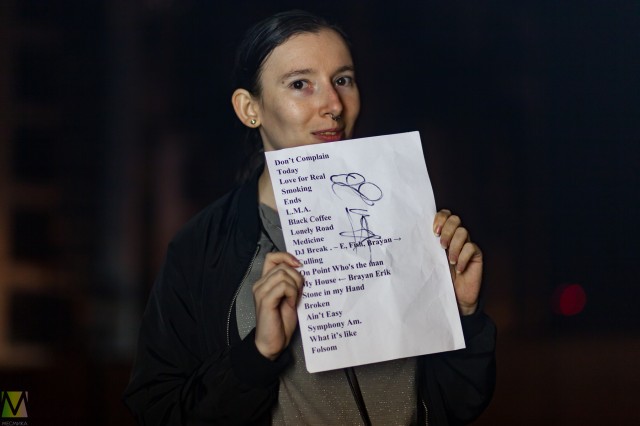 Don't Complain
Today
Love for Real
Smoking
Ends
L.M.A.
Black Coffee
Lonely Road
Medicine
DJ Break . ~ E, Fish, Brayan →
On Point Who's the man
My House ← Brayan Erik
Stone in my Hand
Broken
Ain't Easy
Symphony Am.
What it's like
Folsom